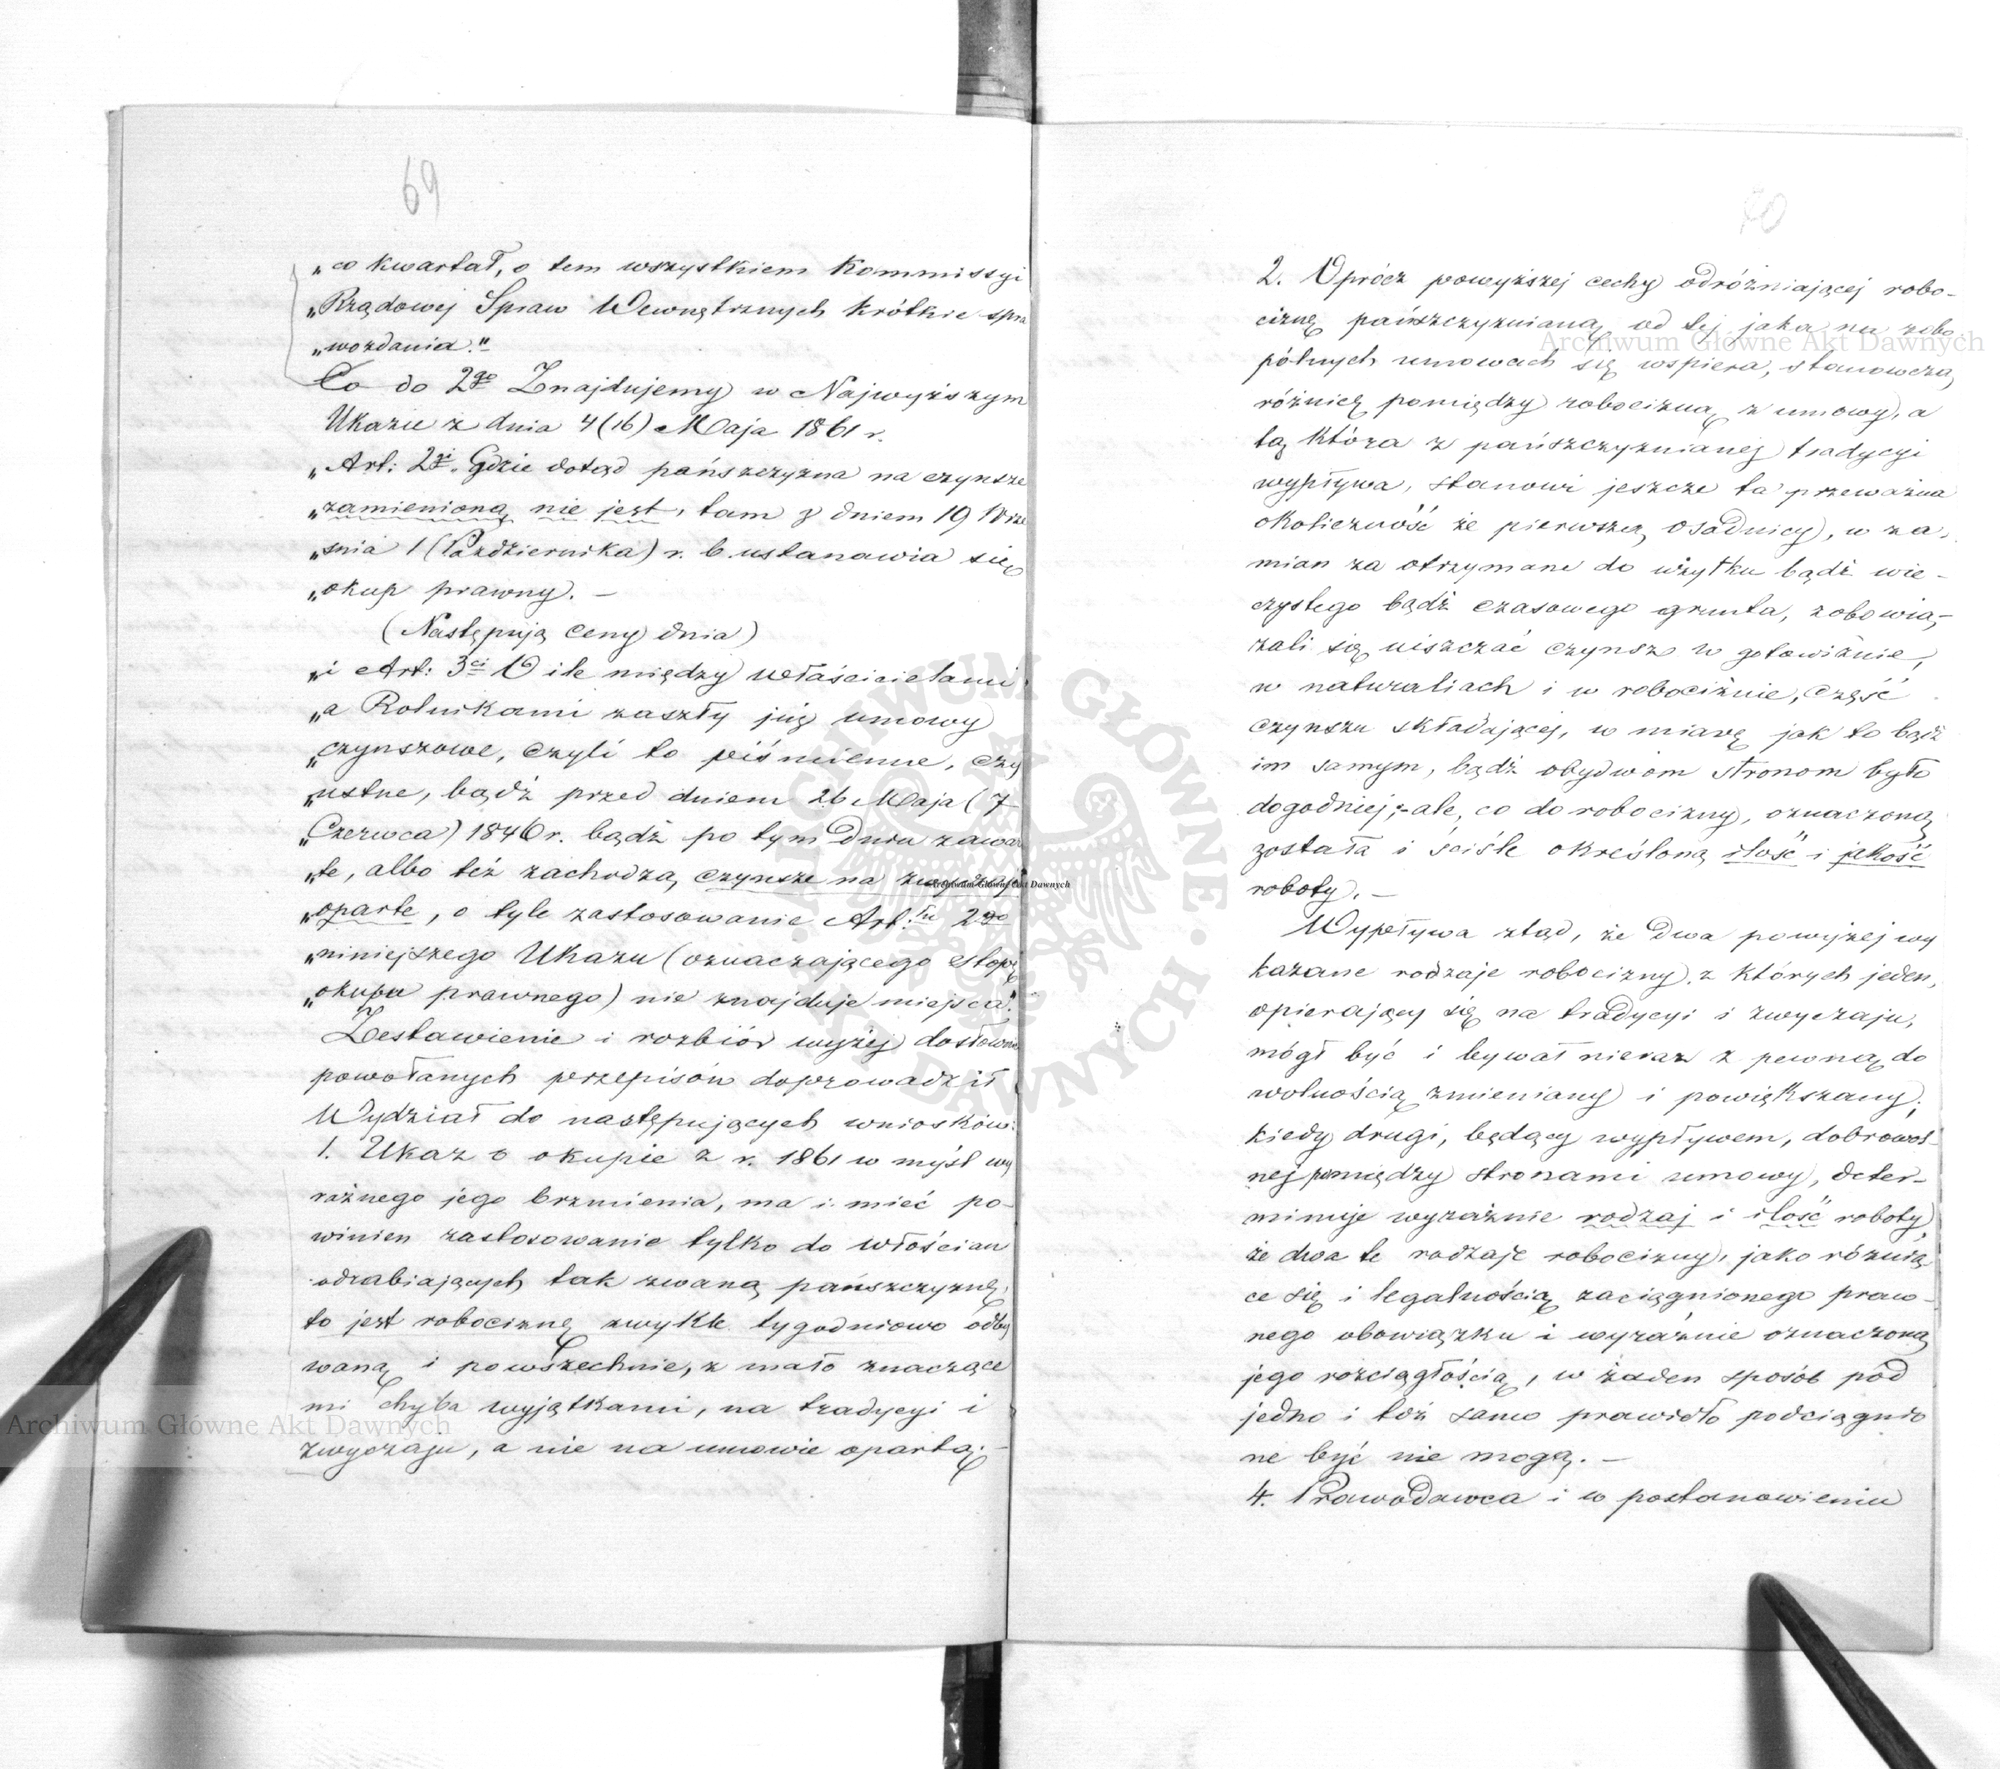 69
„co kwartał, o tem wszystkiem Kommissyi
„Rządowej Spraw Wewnętrznych krótkie spra
„wozdania."
Co do 2go Znajdujemy w Najwyższym
Ukazie z dnia 4 (16) Maja 1861 r.
„Art: 2gi. Gdzie dotąd pańszczyzna na czynsze
„zamienioną nie jest, tam z dniem 19 Wrze
„śnia 1 (Października) r. b. ustanawia się
„okup prawny. —
(Następują ceny dnia)
„i Art: 3ci O ile między właścicielami
„a Rolnikami zaszły już umowy
„czynszowe, czyli to piśmienne, czy
„ustne, bądź przed dniem 26 Maja (7
„Czerwca) 1846 r. bądź po tym Dniu zawar
„te, albo też zachodzą czynsze na zwyczaju
„oparte, o tyle zastosowanie Art:łu 2go
„niniejszego Ukazu (oznaczającego stopę
„okupu prawnego) nie znajduje miejsca."
Zestawienie i rozbiór wyżej dosłownie
powołanych przepisów doprowadził
Wydział do następujących wniosków:
1. Ukaz o okupie z r. 1861 w myśl wy
raźnego jego brzmienia, ma i mieć po-
winien zastosowanie tylko do włościan
odrabiających tak zwaną pańszczyznę,
to jest robociznę zwykle tygodniowo odby
waną i powszechnie, z mało znaczące
mi chyba wyjątkami, na tradycyi i
zwyczaju, a nie na umowie opartą. —
70
2. Oprócz powyższej cechy odróżniającej robo-
ciznę pańszczyznianą od tej jaka na zobo
pólnych umowach się wspiera, stanowczą
różnicę pomiędzy robocizną z umowy, a
tą która z pańszczyznianej tradycyi
wypływa, stanowi jeszcze ta przeważna
okoliczność że pierwszej osadnicy, w za-
mian za otrzymane do użytku bądź wie-
czystego bądź czasowego grunta, zobowią-
zali się uiszczać czynsz w gotowiźnie,
w naturaliach i w robociźnie, część
czynszu składającej, w miarę jak to bądź
im samym, bądź obydwom stronom było
dogodniej; - ale, co do robocizny, oznaczoną
została i ściśle określoną ilość i jakość
roboty. —
Wypływa ztąd, że dwa powyżej wy
kazane rodzaje robocizny, z których jeden,
opierający się na tradycyi i zwyczaju,
mógł być i bywał nieraz z pewną do
wolnością zmieniany i powiększany;
kiedy drugi, będący wypływem, dobrowol-
nej pomiędzy stronami umowy, deter-
minuje wyraźnie rodzaj i ilość roboty,
że dwa te rodzaje robocizny, jako różnią
ce się i legalnością zaciągnionego praw-
nego obowiązku i wyraźnie oznaczoną
jego rozciągłością, w żaden sposób pod
jedno i toż samo prawidło podciągnio
ne być nie mogą. —
4. Prawodawca i w postanowieniu
Archiwum Główne Akt Dawnych
Archiwum Główne Akt Dawnych
Archiwum Główne Akt Dawnych
ARCHIWUM GŁÓWNE AKT DAWNYCH